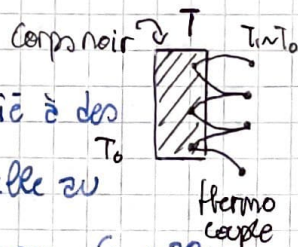 Corps noir T T₁~T₀
ié à des
T₀
lle au
thermo
couple